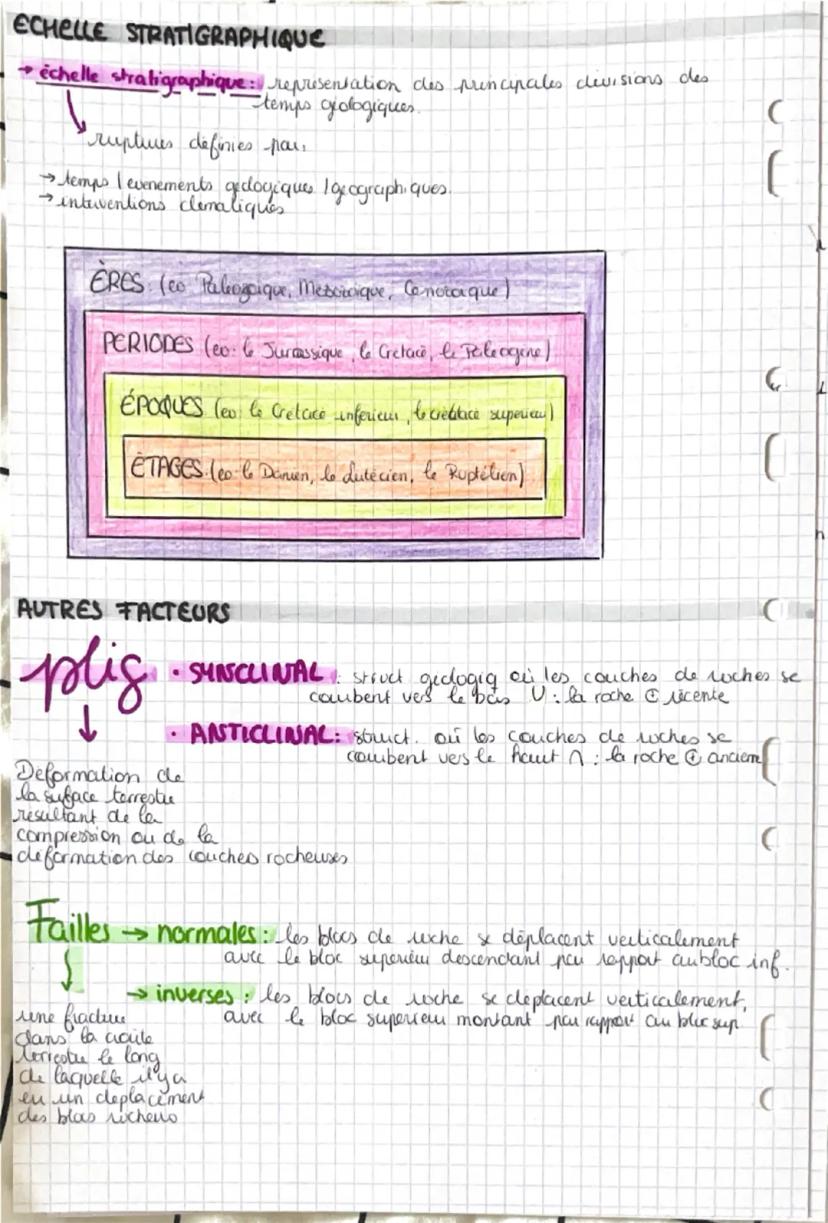 ECHELLE STRATIGRAPHIQUE
→ échelle stratigraphique: représentation des principales divisions des
temps géologiques.
ruptures définies par,
→ temps / evenements geologiques / geographiques.
→ interventions climatiques
ÈRES: (ex Paleozoique, Mesozoique, Cenozoique)
PERIODES (ex: le Jurassique, le Crétacé, le Paléogène)
ÉPOQUES (ex: le Crétacé inferieur, le crétacé superieur)
ÉTAGES: (ex: le Danien, le Lutécien, le Ruptélien)
AUTRES FACTEURS
plis • SYNSCLINAL: struct geologiq où les couches de roches se
courbent vers le bas U: la roche ⊕ récente
• ANTICLINAL: struct. où les couches de roches se
courbent vers le haut ∩: la roche ⊕ ancienn
Déformation de
la suface terrestre
résultant de la
compression ou de la
déformation des couches rocheuses
Failles → normales: les blocs de roche se déplacent verticalement
avec le bloc superieur descendant par rapport au bloc inf.
→ inverses: les blocs de roche se deplacent verticalement,
avec le bloc superieur montant par rapport au bloc sup
une fracture
dans la croûte
terrestre le long
de laquelle il y a
eu un deplacement
des blocs rocheux